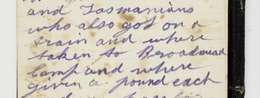 and Tasmanians
who also got on a
train and where
taken to Broadmead
Camp and where
given a pound each